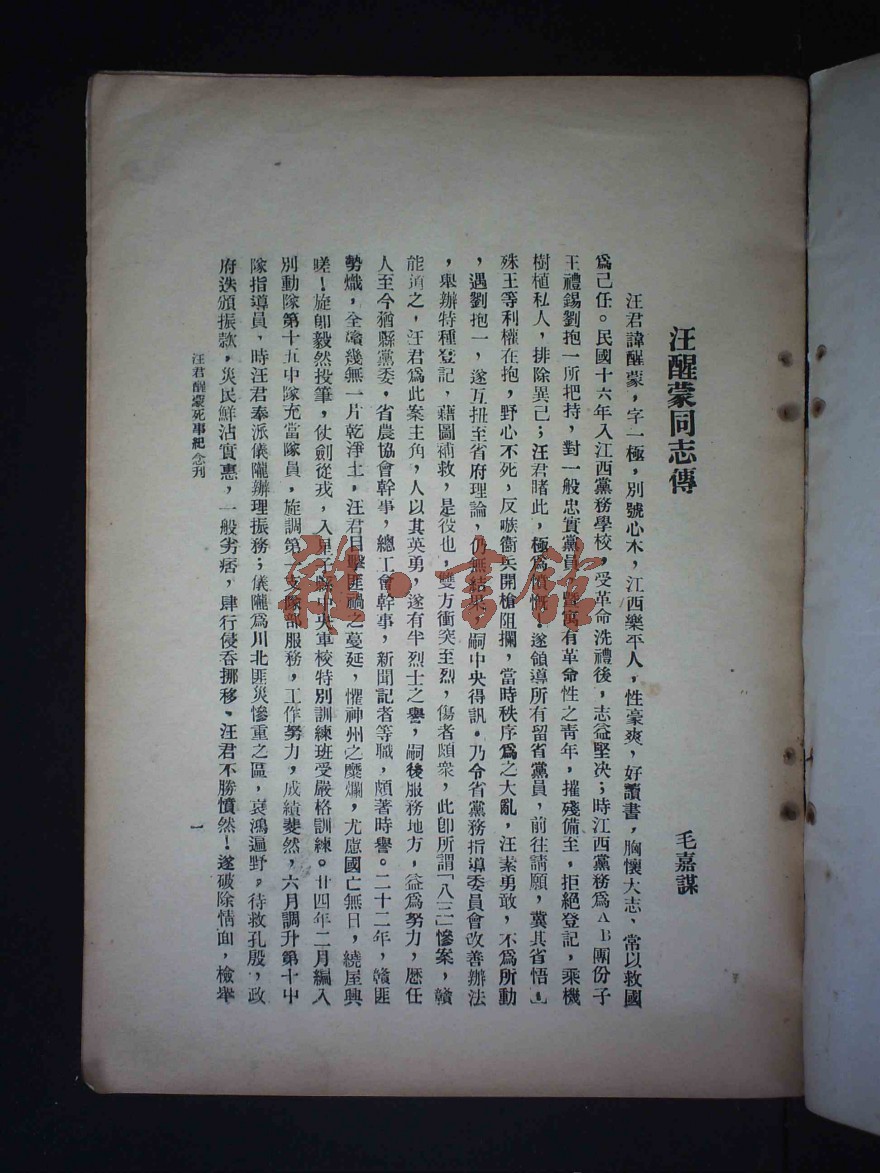 汪醒蒙同志傳
毛嘉謀
汪君諱醒蒙，字一極，別號心木，江西樂平人，性豪爽，好讀書，胸懷大志，常以救國
爲己任。民國十六年入江西黨務學校，受革命洗禮後，志益堅決；時江西黨務爲AB團份子
王禮錫劉抱一所把持，對一般忠實黨員，暨富有革命性之靑年，摧殘備至，拒絕登記，乘機
樹植私人，排除異己；汪君睹此，極爲憤慨！遂領導所有留省黨員，前往請願，冀其省悟，
殊王等利權在抱，野心不死，反嗾衞兵開槍阻攔，當時秩序爲之大亂，汪素勇敢，不爲所動
，遇劉抱一，遂互扭至省府理論，仍無結果。嗣中央得訊。乃令省黨務指導委員會改善辦法
，舉辦特種登記，藉圖補救，是役也，雙方衝突至烈，傷者頗衆，此卽所謂「八三」慘案，贛
能道之，汪君爲此案主角，人以其英勇，遂有半烈士之譽，嗣後服務地方，益爲努力，歷任
人至今猶縣黨委，省農協會幹事，總工會幹事，新聞記者等職，頗著時譽。二十二年，贛匪
勢熾，全贛幾無一片乾淨土，汪君目擊匪禍之蔓延，懼神州之糜爛，尤慮國亡無日，繞屋興
嗟！旋卽毅然投筆，仗劍從戎，入星子縣中央軍校特別訓練班受嚴格訓練。廿四年二月編入
別動隊第十五中隊充當隊員，旋調第二支隊部服務，工作努力，成績斐然，六月調升第十中
隊指導員，時汪君奉派儀隴辦理振務；儀隴爲川北匪災慘重之區，哀鴻遍野，待救孔殷，政
府迭頒振款，災民鮮沾實惠，一般劣痞，肆行侵吞挪移、汪君不勝憤然！遂破除情面，檢舉
汪君醒蒙死事紀念刊
一
龍·書館